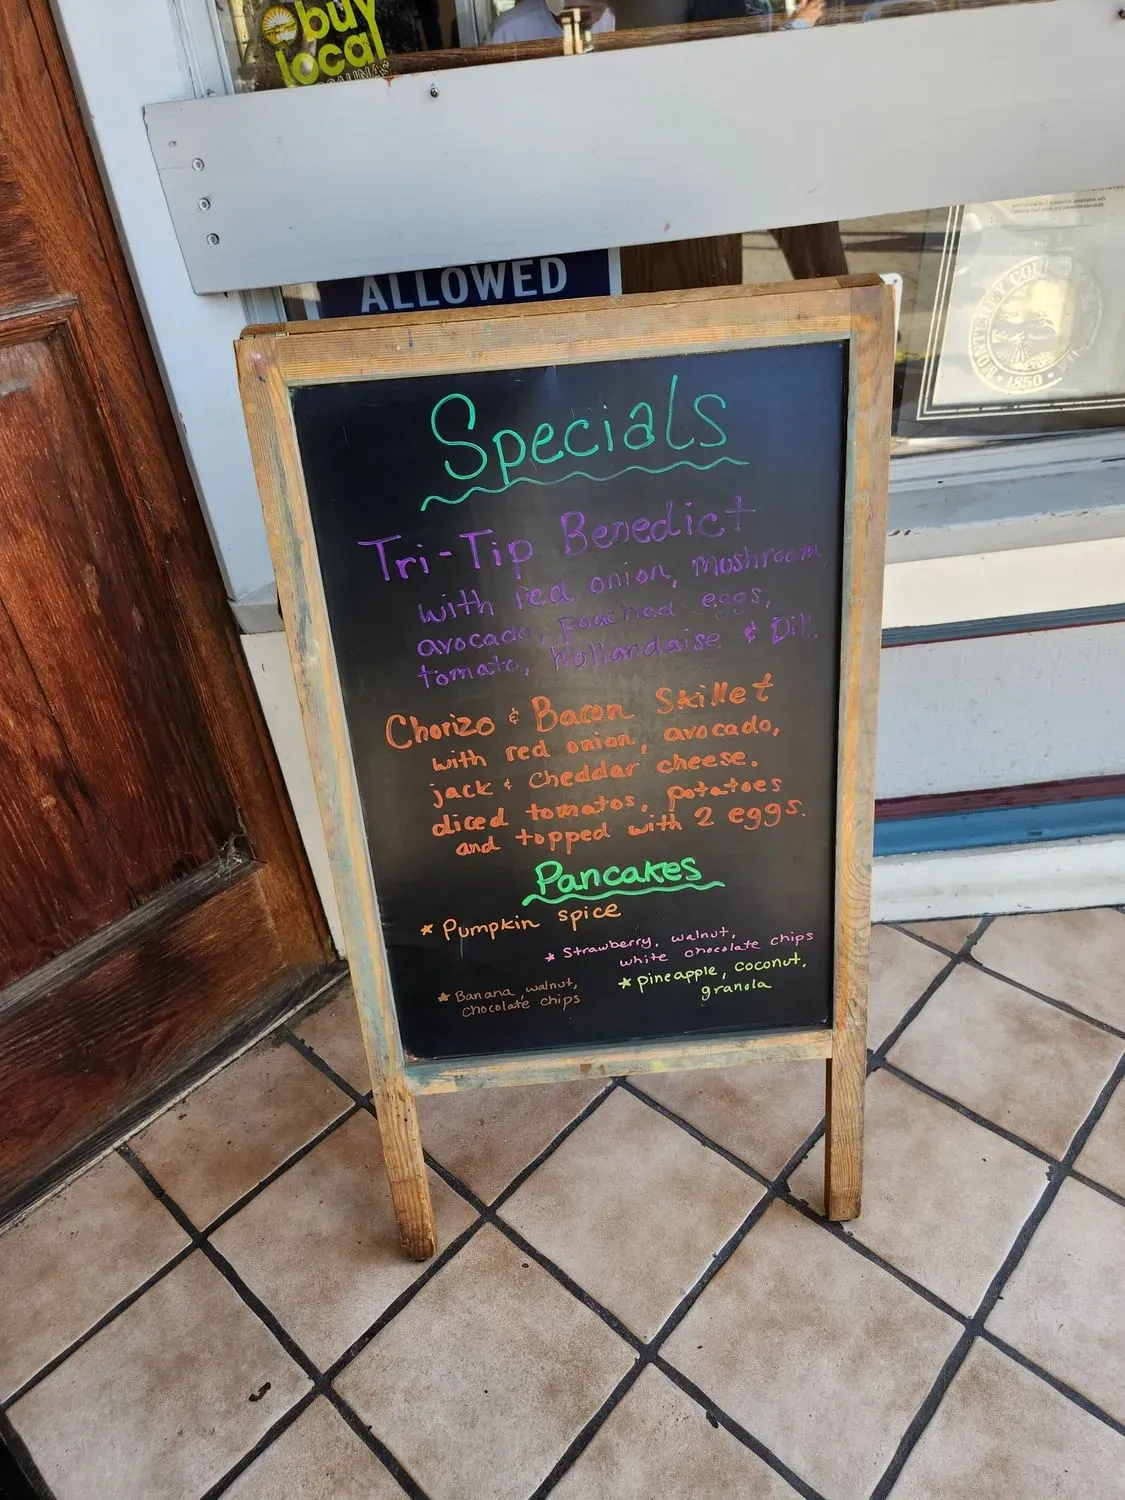 buy
local
SALINAS
ALLOWED
MONTEREY COU
1850
Specials
Tri-Tip Benedict
with red onion, mushroom,
avocado, poached eggs,
tomato, hollandaise & Dill.
Chorizo & Bacon Skillet
with red onion, avocado,
jack & cheddar cheese.
diced tomatos, potatoes
and topped with 2 eggs.
Pancakes
* Pumpkin spice
* Strawberry, walnut,
white chocolate chips
* Banana, walnut,
chocolate chips
* pineapple, coconut.
granola